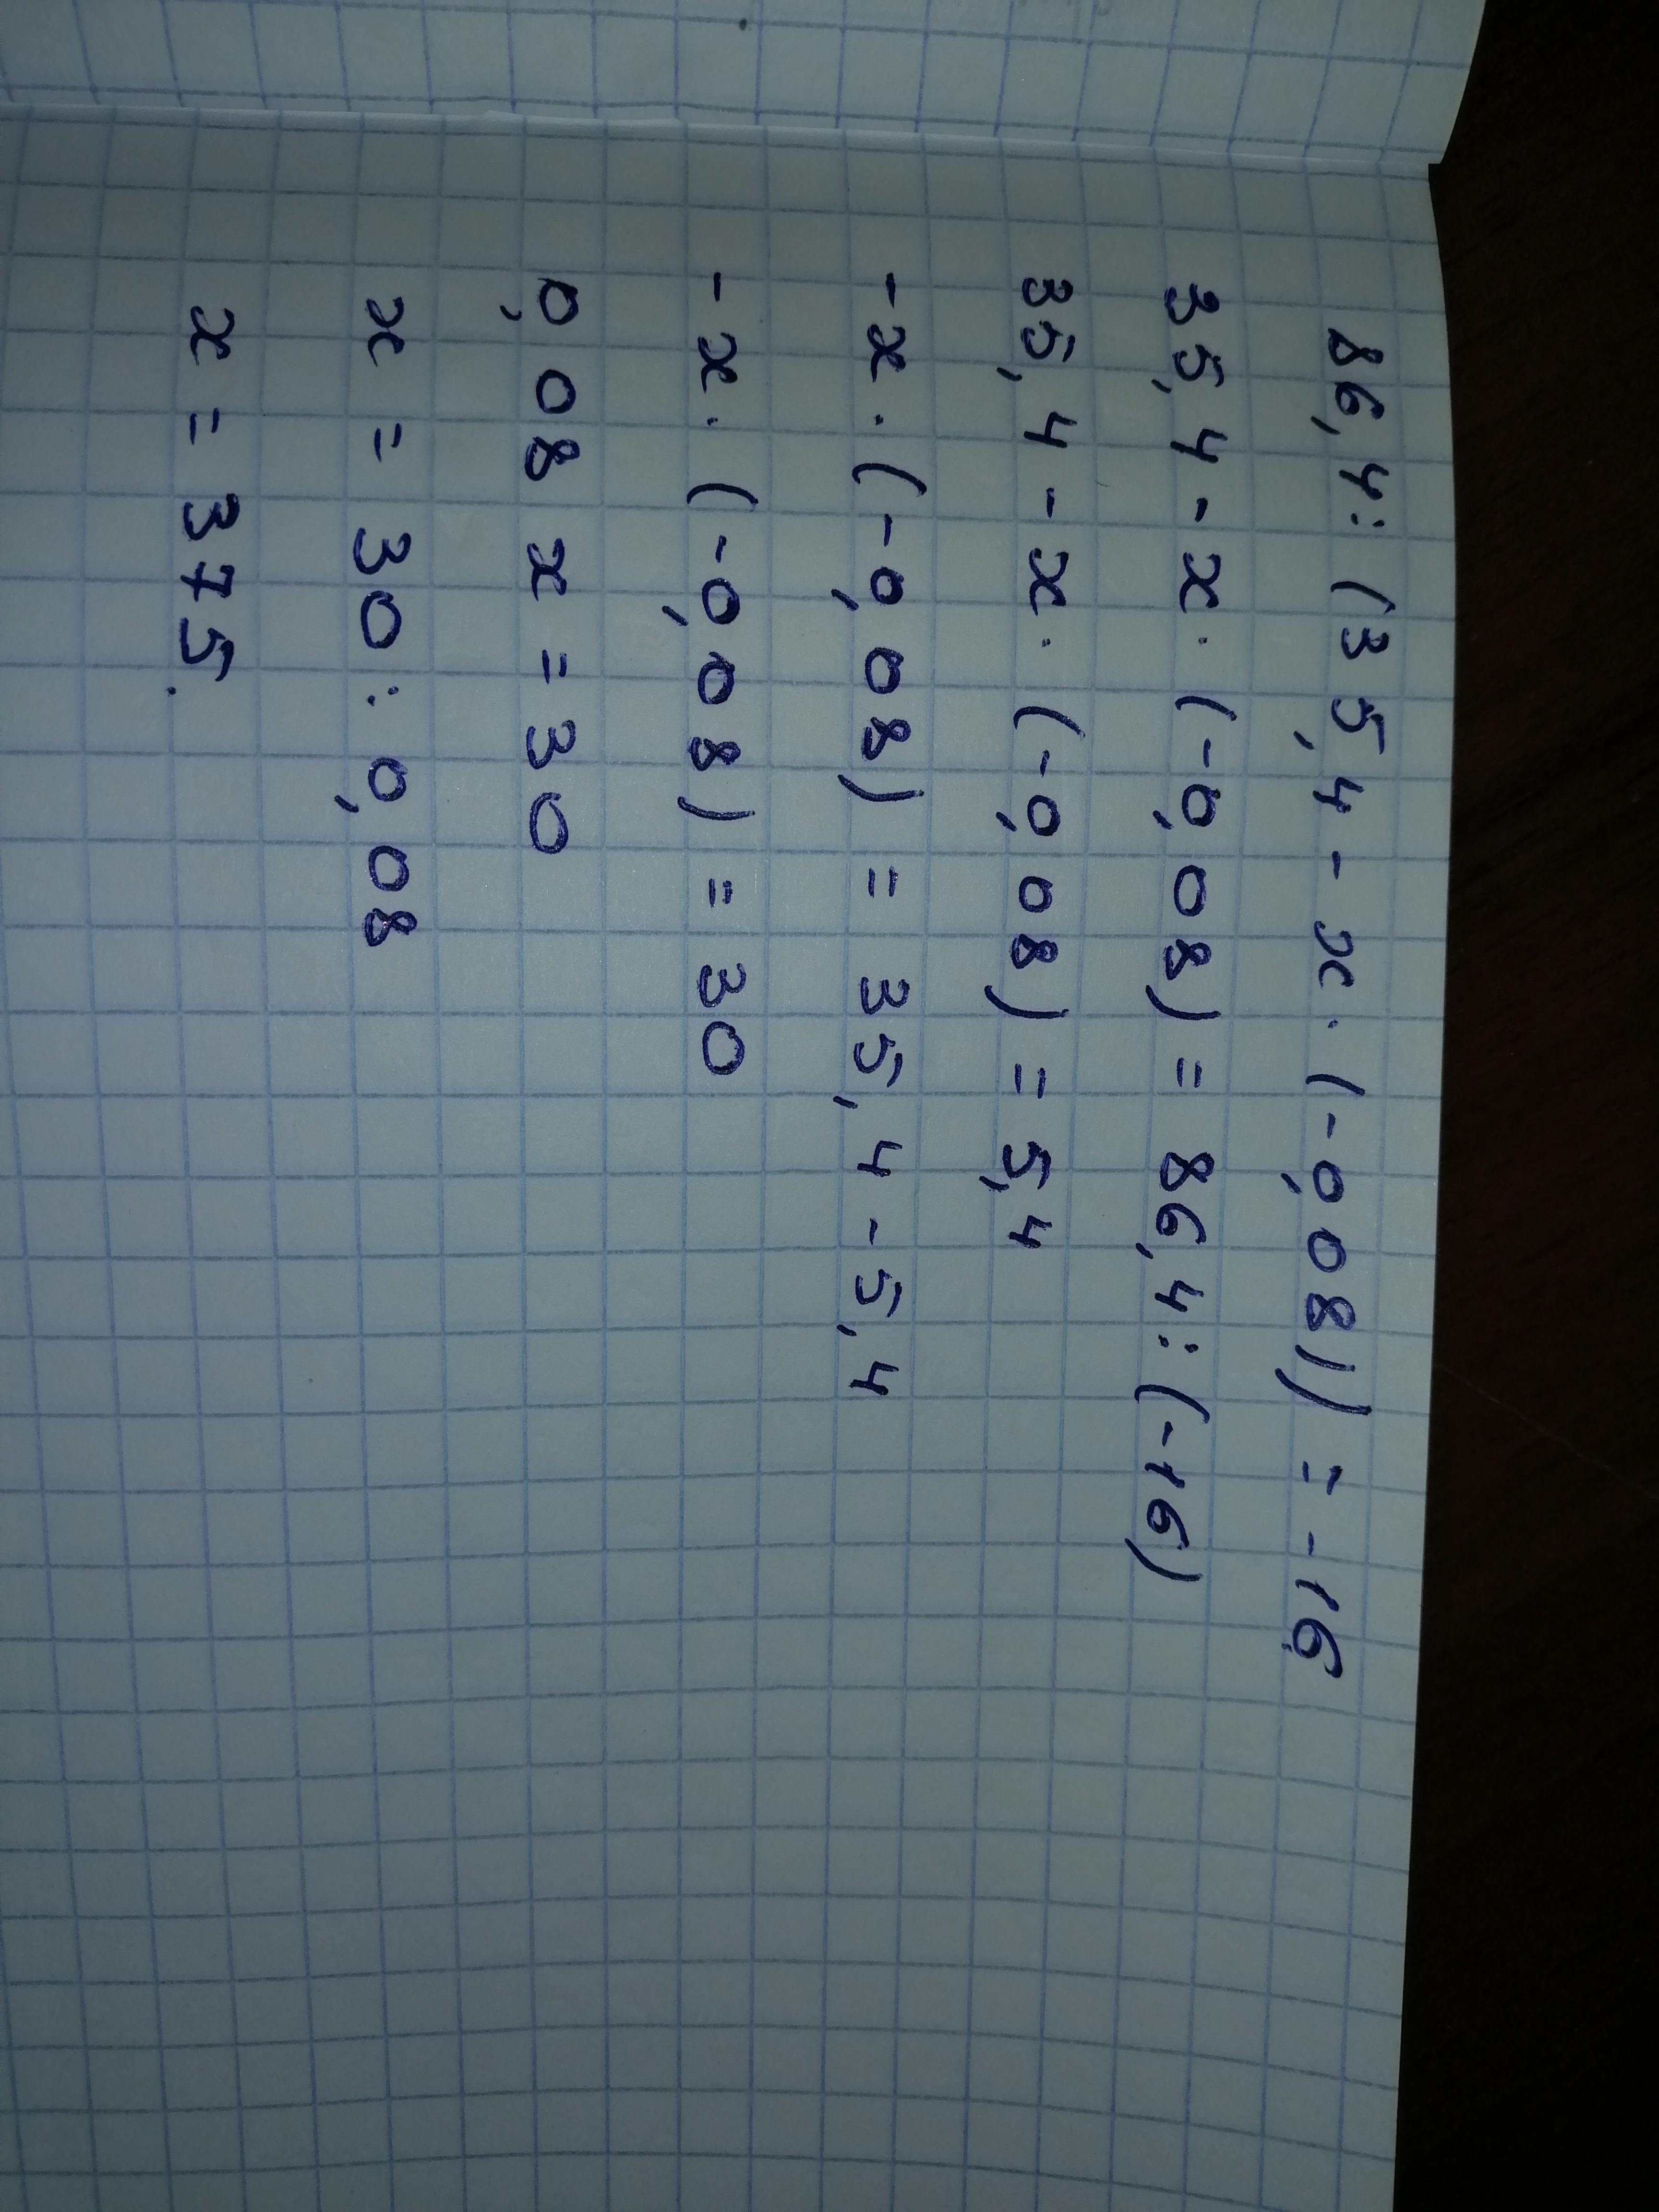 86,4:(35,4-x·(-0,08))=-16
35,4-x·(-0,08)=86,4:(-16)
35,4-x·(-0,08)=5,4
-x·(-0,08)=35,4-5,4
-x·(-0,08)=30
0,08x=30
x=30:0,08
x=375.